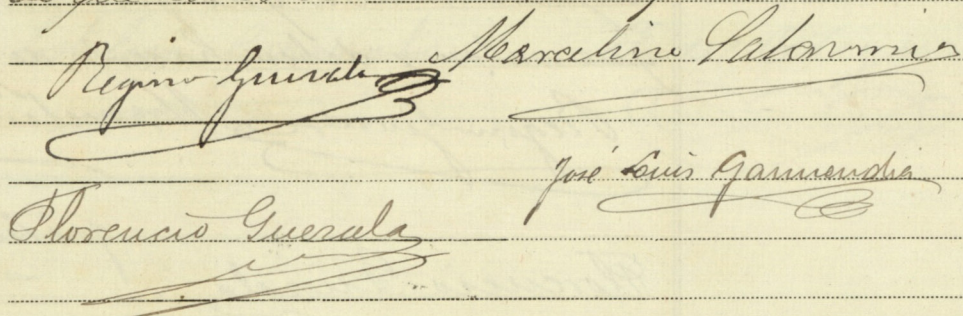 Regino Guerala Marcelino Salaverria
José Luis Garmendia
Florencio Guerala